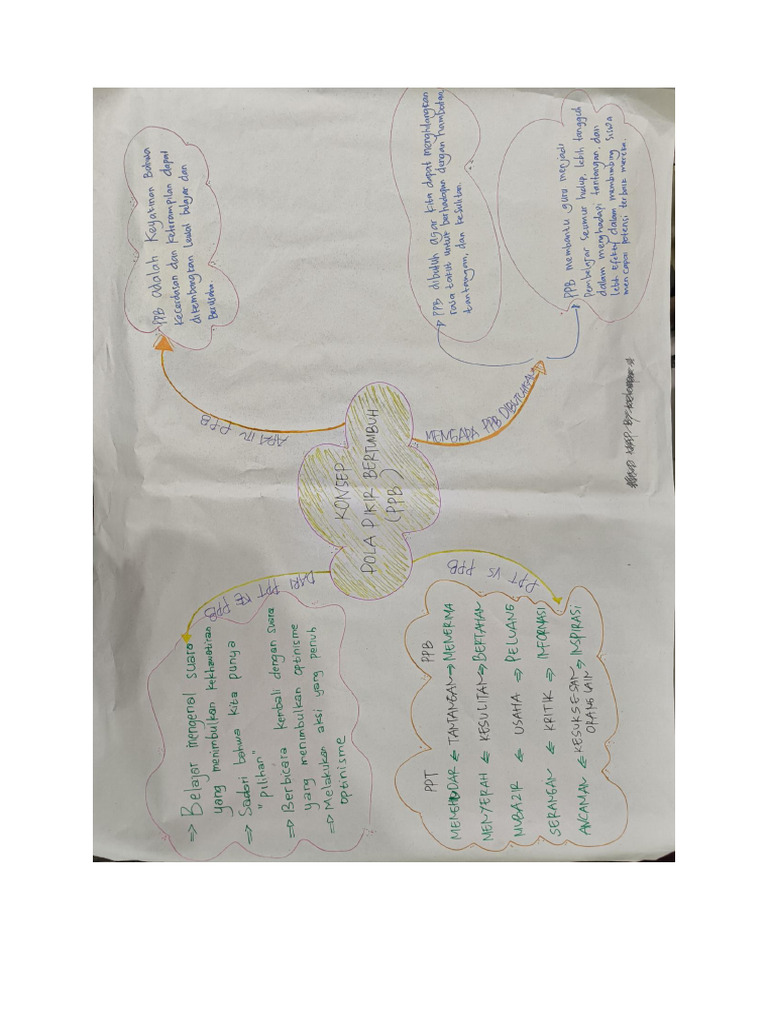 KONSEP
POLA PIKIR BERTUMBUH
(PPB)
APA ITU PPB
PPB adalah Keyakinan Bahwa
Kecerdasan dan Keterampilan dapat
dikembangkan Lewat belajar dan
Berusaha.
MENGAPA PPB DIBUTUHKAN
PPB dibutuh agar kita dapat menghilangkan
rasa takut untuk berhadapan dengan hambatan,
tantangan, dan kesulitan.
PPB membantu guru menjadi
Pembelajar seumur hidup, lebih tangguh
dalam menghadapi tantangan, dan
lebih efektif dalam membimbing siswa
mencapai potensi terbaik mereka.
DARI PPT KE PPB
⇒ Belajar mengenal suara
yang menimbulkan kekhawatiran
⇒ Sadari bahwa kita punya
"pilihan"
⇒ Berbicara kembali dengan suara
yang menimbulkan optinisme
⇒ Melakukan aksi yang penuh
optinisme
PPT VS PPB
PPT PPB
⇐ TANTANGAN ⇒ MENERIMA
MENYERAH ⇐ KESULITAN ⇒ BERTAHAN
MUBAZIR ⇐ USAHA ⇒ PELUANG
SERANGAN ⇐ KRITIK ⇒ INFORMASI
ANCAMAN ⇐ KESUKSESAN ⇒ INSPIRASI
ORANG LAIN